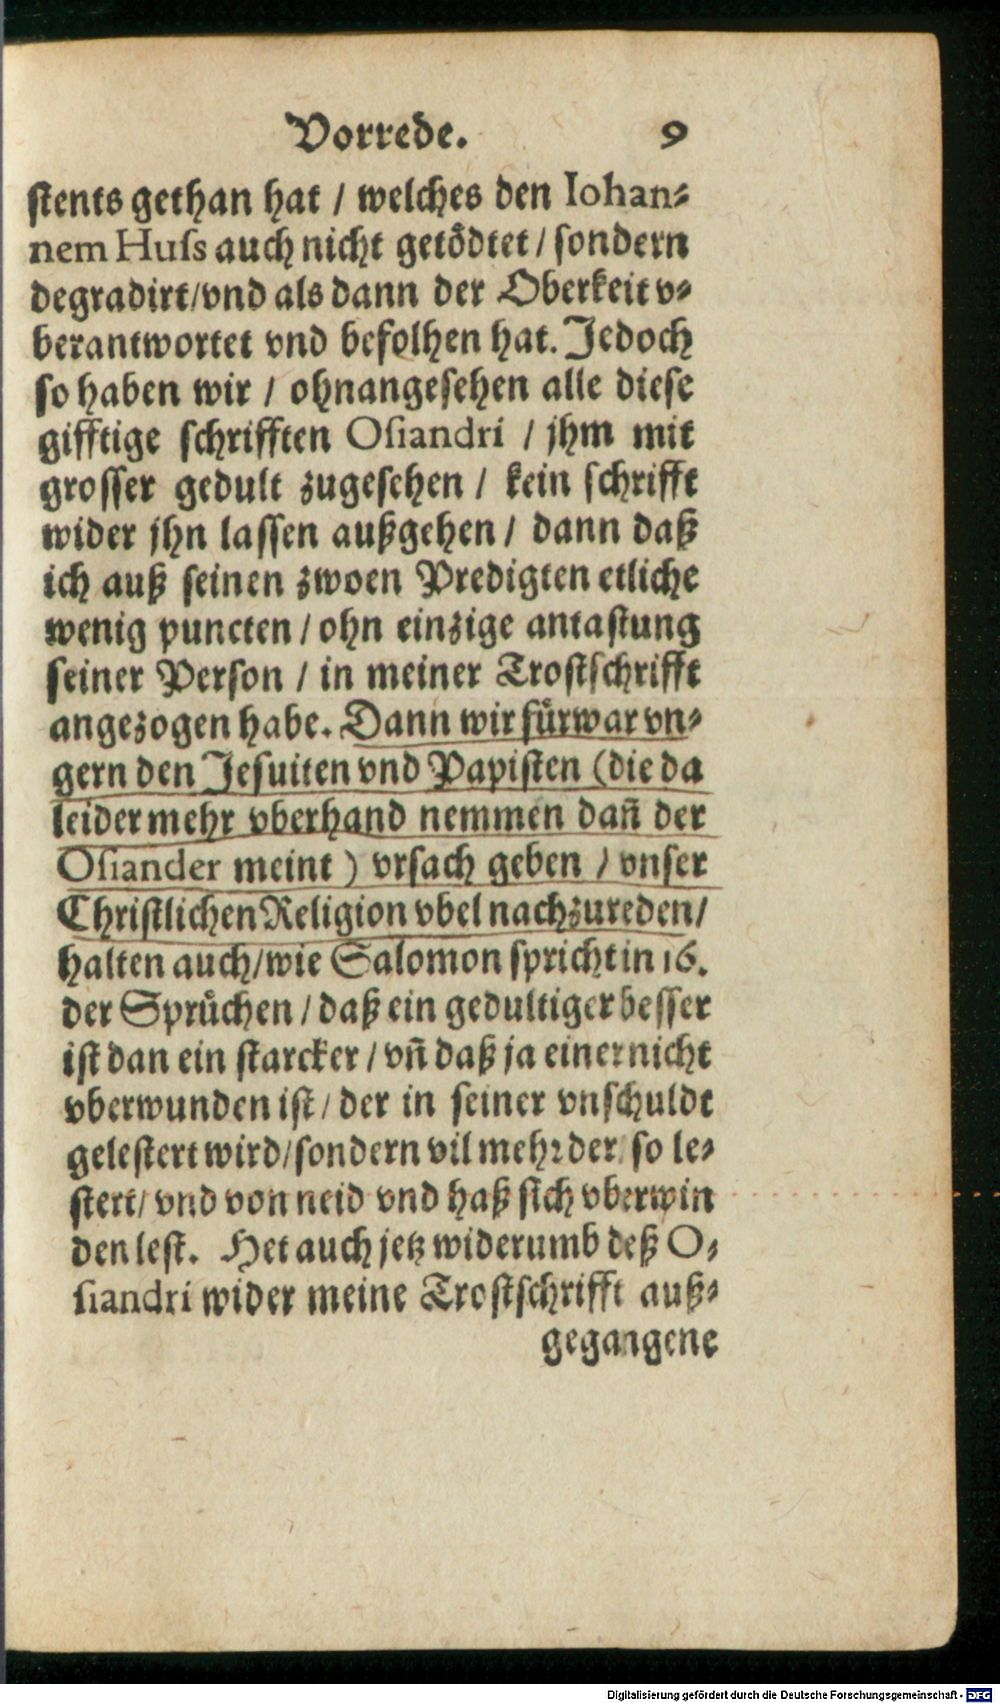 Vorrede. 9
stents gethan hat / welches den Iohan-
nem Huſs auch nicht getödtet / sondern
degradirt/vnd als dann der Oberkeit v-
berantwortet vnd befolhen hat. Jedoch
so haben wir / ohnangesehen alle diese
gifftige schrifften Oſiandri / jhm mit
grosser gedult zugesehen / kein schrifft
wider jhn lassen außgehen / dann daß
ich auß seinen zwoen Predigten etliche
wenig puncten / ohn einzige antastung
seiner Person / in meiner Trostschrifft
angezogen habe. Dann wir fürwar vn-
gern den Jesuiten vnd Papisten (die da
leider mehr vberhand nemmen dañ der
Oſiander meint) vrsach geben / vnser
Christlichen Religion vbel nachzureden/
halten auch/wie Salomon spricht in 16.
der Sprüchen / daß ein gedultiger besser
ist dan ein starcker / vñ daß ja einer nicht
vberwunden ist / der in seiner vnschuldt
gelestert wird/sondern vil mehr der so le-
stert/ vnd von neid vnd haß sich vberwin
den lest. Het auch jetz widerumb deß O-
ſiandri wider meine Trostschrifft auß-
gegangene
Digitalisierung gefördert durch die Deutsche Forschungsgemeinschaft - DFG